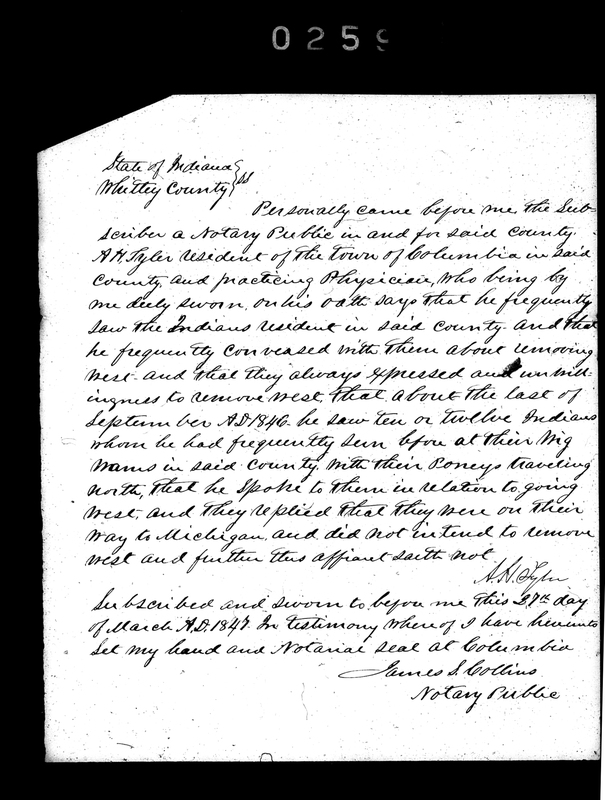 0259
State of Indiana }
Whitley County } ss
Personally came before me, the Sub-
scriber a Notary Public in and for said county.
A H Tyler resident of the town of Columbia in said
county, and practicing Physician, who being by
me duly sworn, on his oath says that he frequently
saw the Indians resident in said county. and that
he frequently conveased with them about removing
west. and that they always expressed and unwill-
ingness to remove west. that about the last of
September A.D. 1846. he saw ten or twelve Indians
whom he had frequently seen before at their Wig
wams in said county, with their Poneys traveling
north, that he spoke to them in relation to going
west, and they replied that they were on their
way to Michigan, and did not intend to remove
west and further this affiant saith not
A. H. Tyler
Subscribed and sworn to before me this 27th day
of March A.D. 1847. In testimony where of I have hereunto
set my hand and Notarial seal at Columbia
James S. Collins
Notary Public